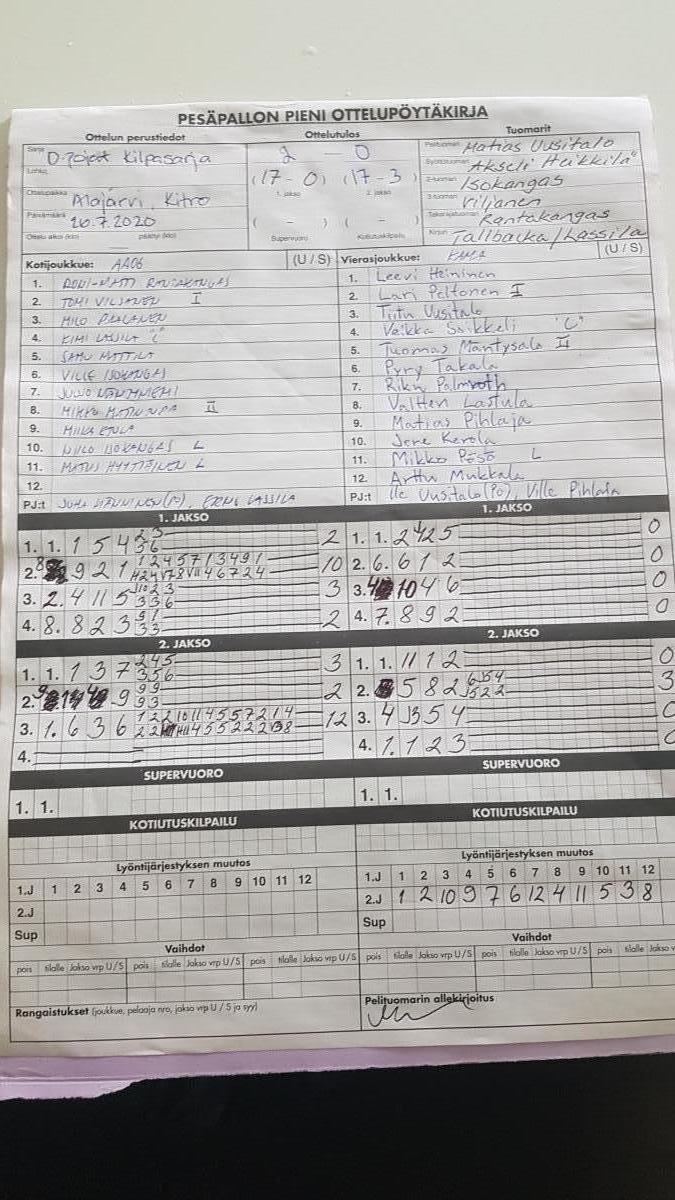 PESÄPALLON PIENI OTTELUPÖYTÄKIRJA
Ottelun perustiedot
Ottelutulos
Tuomarit
Sarja D-pojat Kilpasarja
2 - 0
Pelituomari Matias Uusitalo
Lohko
(17 - 0) (17 - 3)
Syöttötuomari Akseli Heikkilä
1. jakso 2. jakso
2-tuomari Isokangas
Ottelupaikka Alajärvi, Kitro
3-tuomari Viljanen
Päivämäärä 26.7.2020
( - ) ( - )
Takarajatuomari Rantakangas
Ottelu alkoi (klo) päättyi (klo)
Supervuoro Kotiutuskilpailu
Kirjuri Tallbacka/Lassila
Kotijoukkue: AA06 (U / S)
1. RONI-MATTI RANTAKANGAS
2. TOMI VILJANEN I
3. MILO
4. KIMI LASSILA "C"
5. SAMU MATTILA
6. VILLE ISOKANGAS
7. JUUSO
8. MIKKO II
9. MIIKA
10. NIILO ISOKANGAS L
11. MATIAS HYYTIÄINEN L
12.
PJ:t JUHA MÄNNINEN(PJ), LASSILA
Vierasjoukkue: (U / S)
1. Leevi Heininen
2. Lari Peltonen I
3. Tiitu Uusitalo
4. Veikka Soikkeli "C"
5. Tuomas Mäntysalo II
6. Pyry Takala
7. Riku Palmroth
8. Valtteri Lastula
9. Matias Pihlaja
10. Jere Kerola
11. Mikko Pösö L
12. Arttu Mukkala
PJ:t Uusitalo (PJ), Ville Pihlaja
1. JAKSO
1. 1. 1 5 4 2 3 2
5 6
2. 8 9 2 1 1 2 4 5 7 1 3 4 9 1 10
3. 2. 4 11 5 3
3 3 6
4. 8. 8 2 3 9 1 2
3 3
1. JAKSO
1. 1. 2 4 2 5 0
2. 6. 6 1 2 0
3. 4 10 4 6 0
4. 7. 8 9 2 0
2. JAKSO
1. 1. 1 3 7 2 4 5 3
3 5 6
2. 9 9 9 9 2
9 3
3. 1. 6 3 6 1 2 2 10 11 4 5 5 7 2 1 4 12
4.
2. JAKSO
1. 1. 11 1 2 0
2. 5 8 2 6 5 4 3
5 2 2
3. 4 3 5 4 0
4. 1. 1 2 3 0
SUPERVUORO
1. 1.
SUPERVUORO
1. 1.
KOTIUTUSKILPAILU
KOTIUTUSKILPAILU
Lyöntijärjestyksen muutos
1.J 1 2 3 4 5 6 7 8 9 10 11 12
2.J
Sup
Lyöntijärjestyksen muutos
1.J 1 2 3 4 5 6 7 8 9 10 11 12
2.J 1 2 10 9 7 6 12 4 11 5 3 8
Sup
Vaihdot
pois tilalle Jakso vrp U / S pois tilalle Jakso vrp U / S pois tilalle Jakso vrp U / S
Vaihdot
pois tilalle Jakso vrp U / S pois tilalle Jakso vrp U / S pois tilalle Jakso v
Rangaistukset (joukkue, pelaaja nro, jakso vrp U / S ja syy)
Pelituomarin allekirjoitus